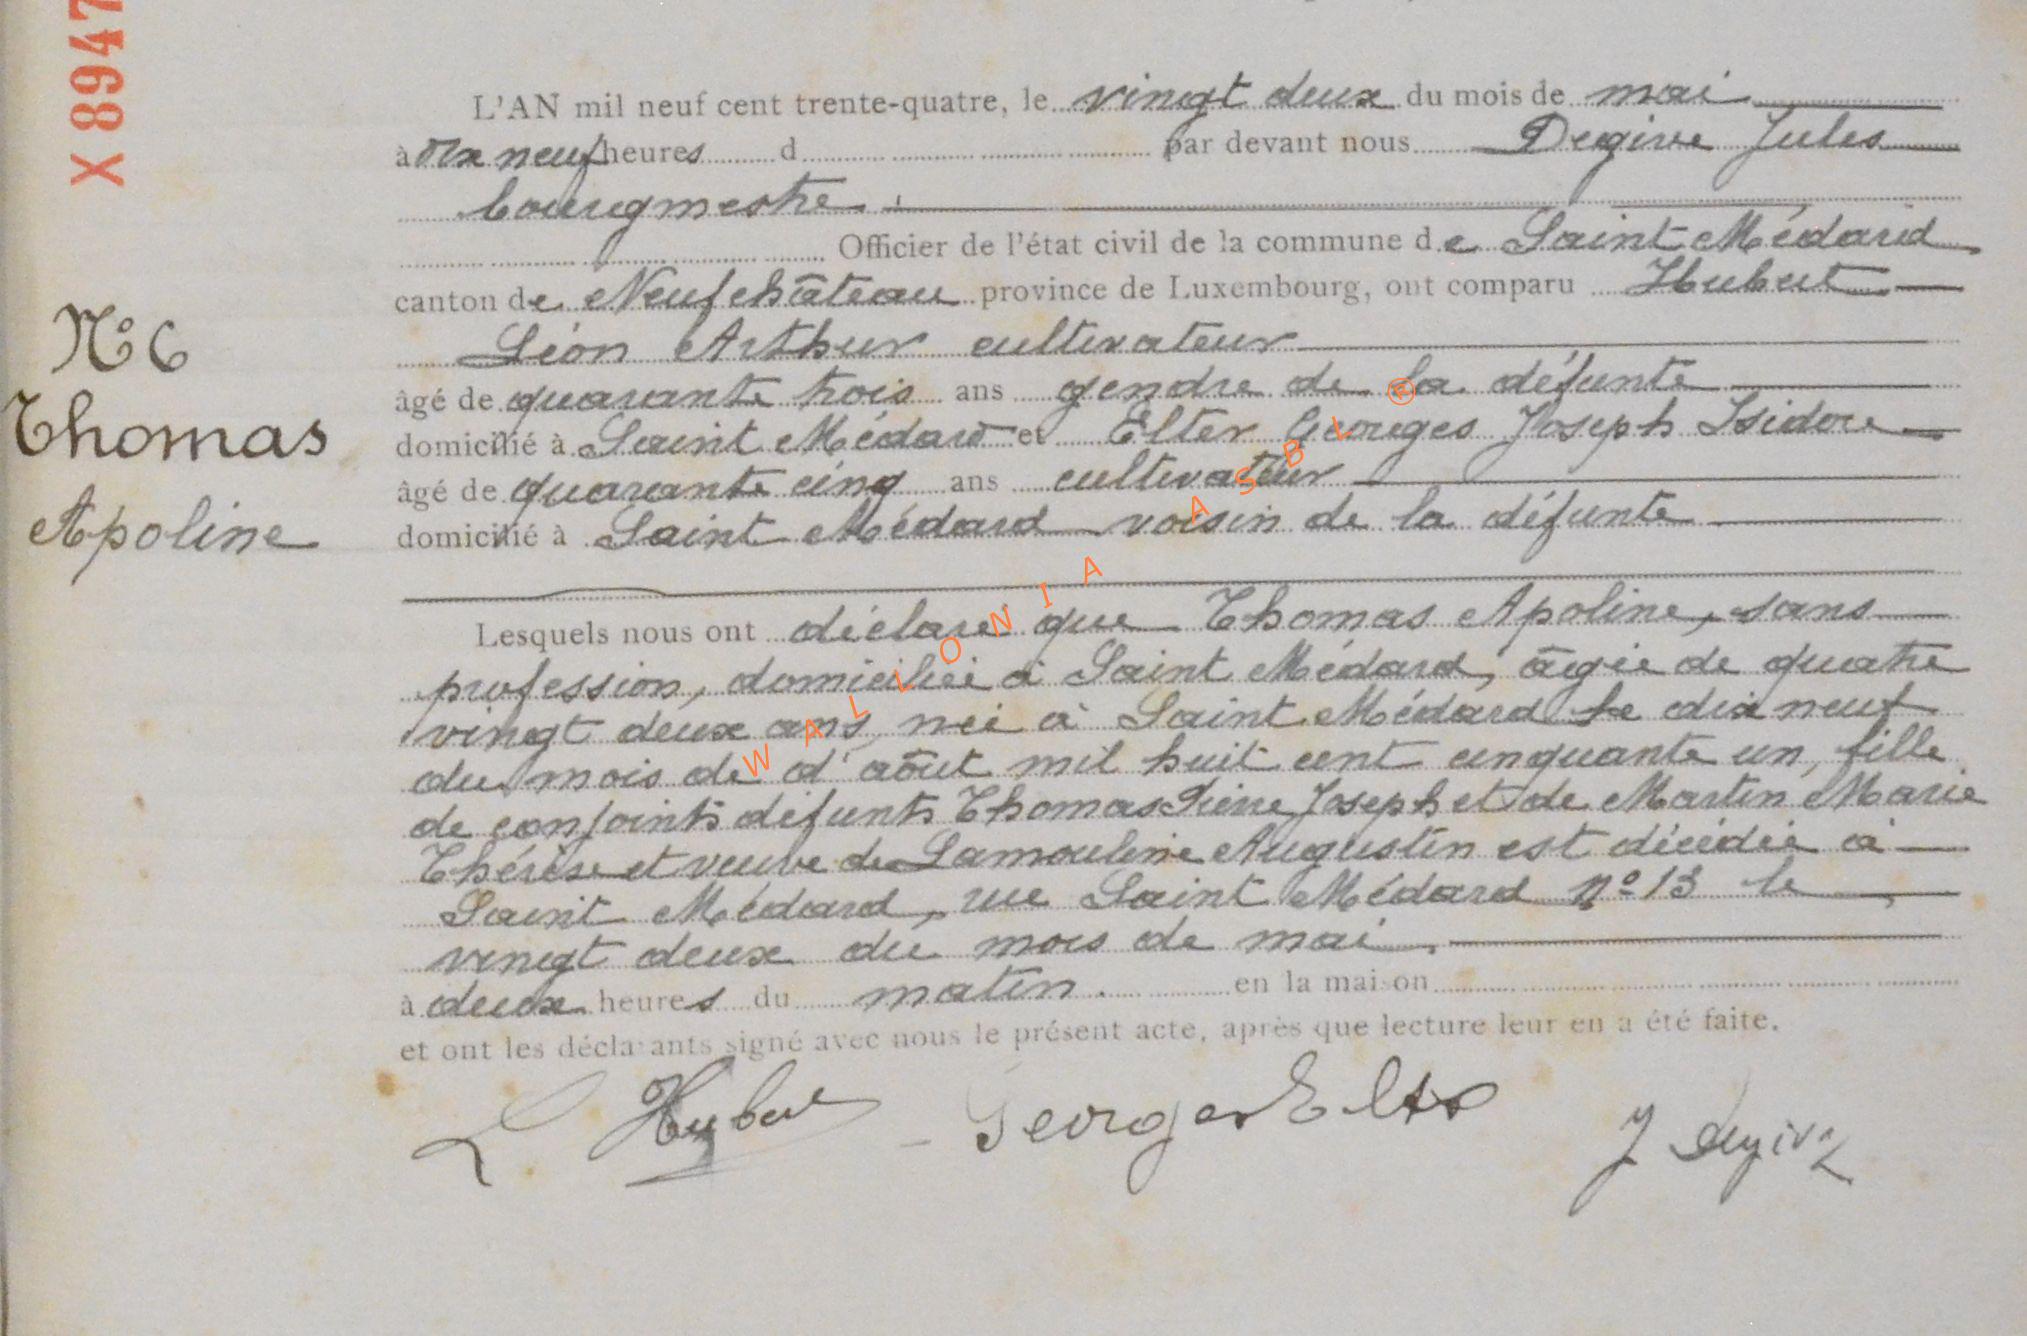 X 8947
L'AN mil neuf cent trente-quatre, le vingt deux du mois de mai
à dix neuf heures d par devant nous Degive Jules
bourgmestre.
Officier de l'état civil de la commune de Saint Médard
canton de Neufchâteau province de Luxembourg, ont comparu Hubert
Léon Arthur cultivateur
âgé de quarante trois ans gendre de la défunte
domicilié à Saint Médard et Elter Georges Joseph Isidore
âgé de quarante cinq ans cultivateur
domicilié à Saint Médard voisin de la défunte
N° 6
Thomas
Apoline
Lesquels nous ont déclaré que Thomas Apoline, sans
profession, domiciliée à Saint Médard, âgée de quatre
vingt deux ans, née à Saint Médard le dix neuf
du mois de d'août mil huit cent cinquante un, fille
de conjoints défunts Thomas Pierre Joseph et de Martin Marie
Thérèse et veuve de Lamouline Augustin est décédée à
Saint Médard, rue Saint Médard n° 13 le
vingt deux du mois de mai.
à deux heures du matin. en la maison
et ont les déclarants signé avec nous le présent acte, après que lecture leur en a été faite.
L Hubert Georges Elter J Degive
WALLONIA ASBL ®